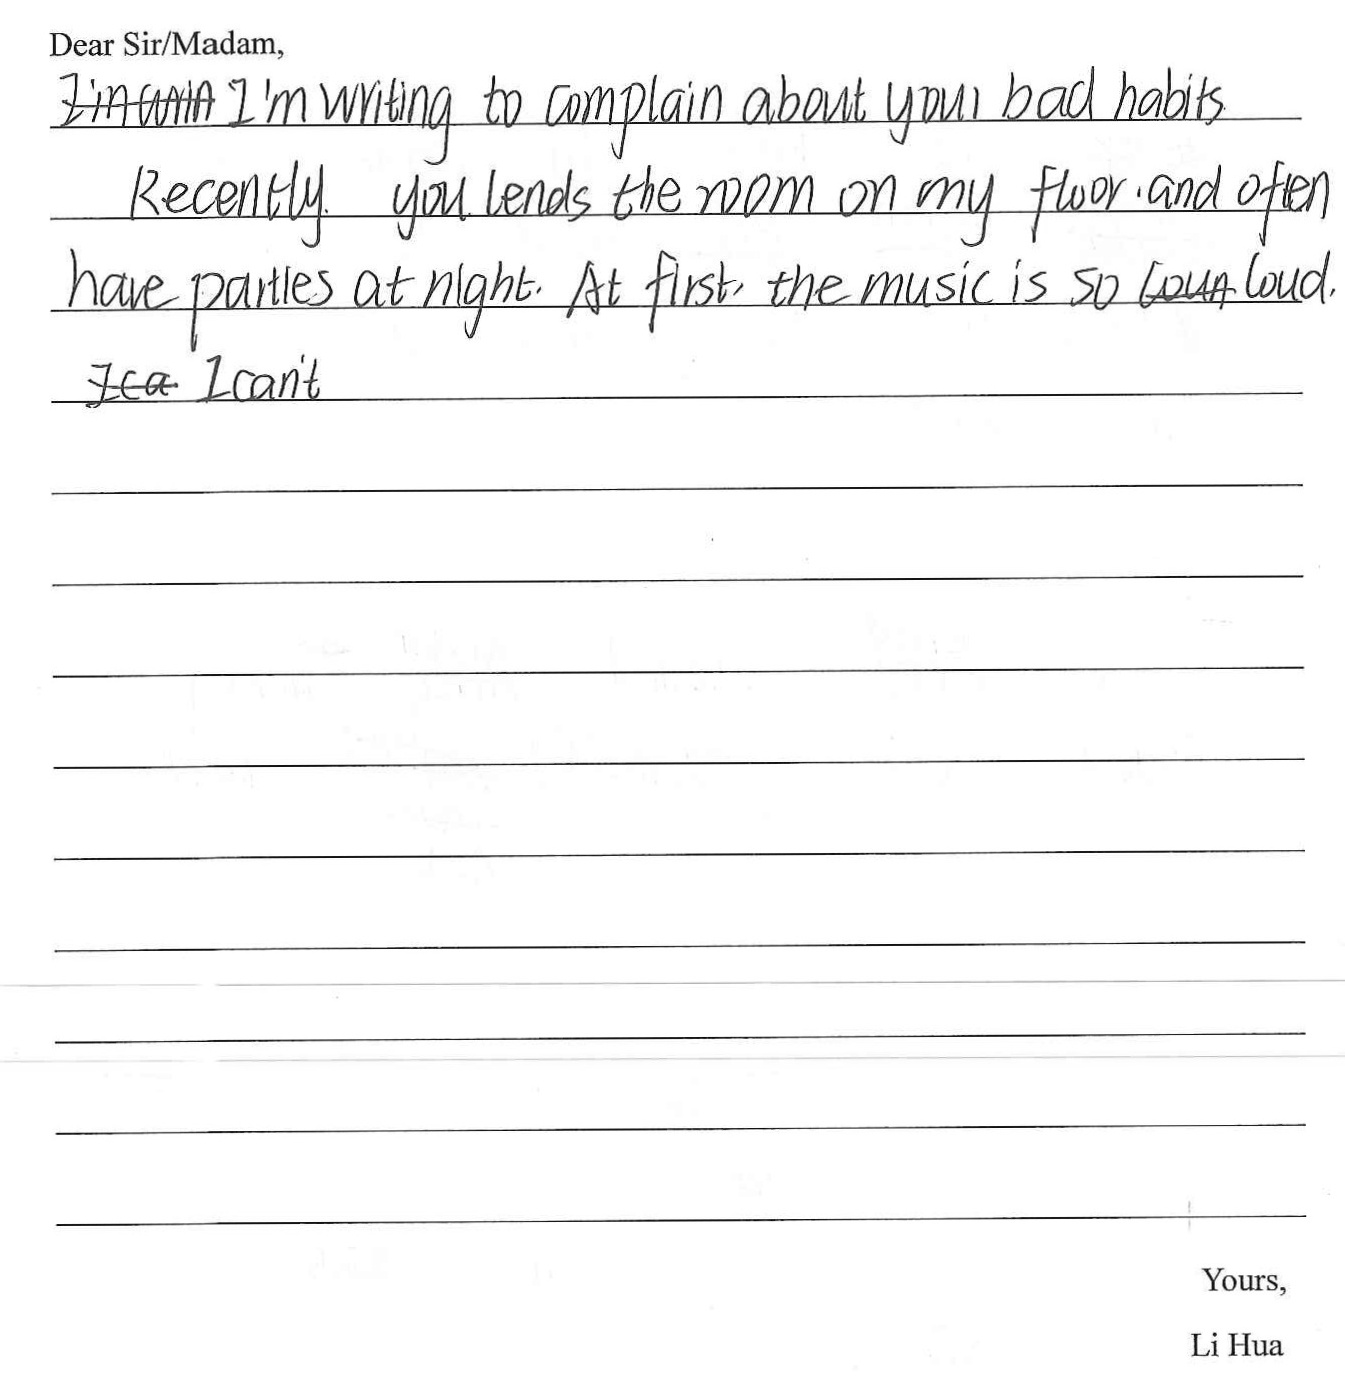 Dear Sir/Madam,
I'm writing to complain about your bad habits
Recently. you lends the room on my floor. and often
have parties at night. At first, the music is so loud.
I can't
Yours,
Li Hua